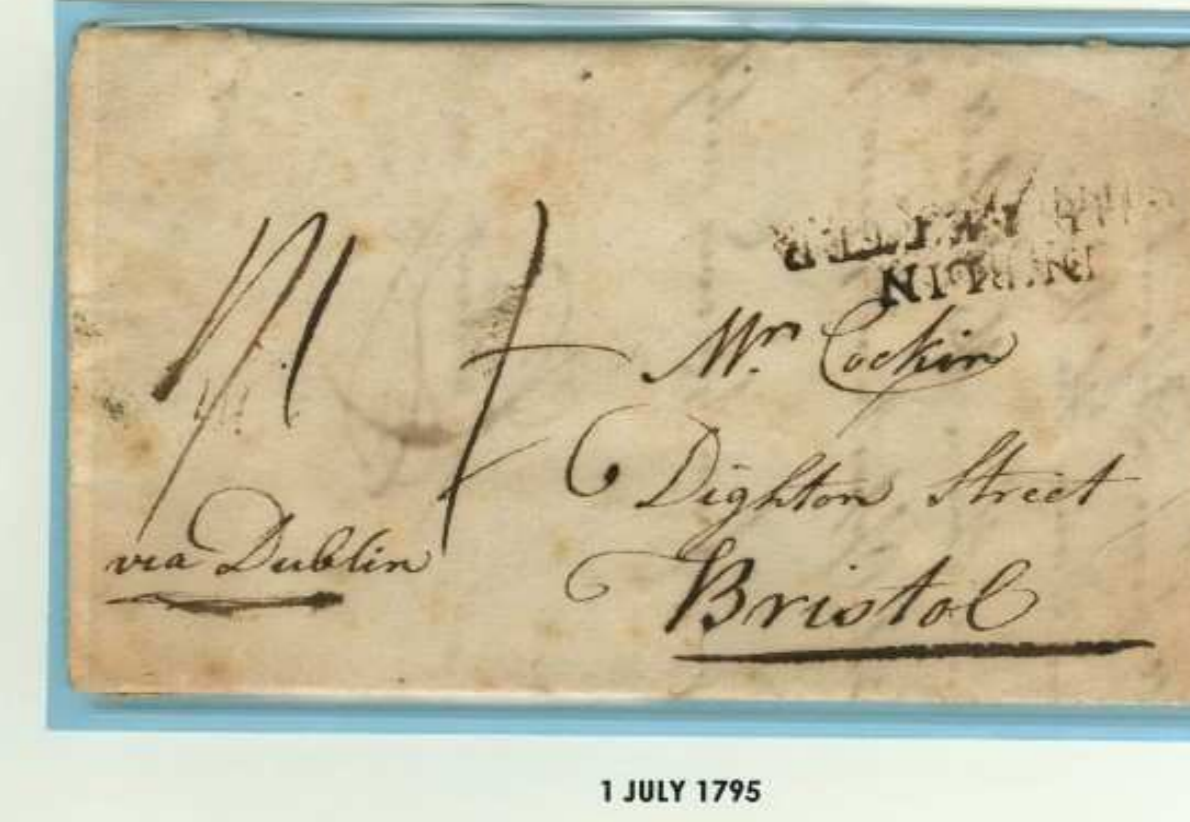 Mr. Cockin
Dighton Street
Bristol
via Dublin
1 JULY 1795